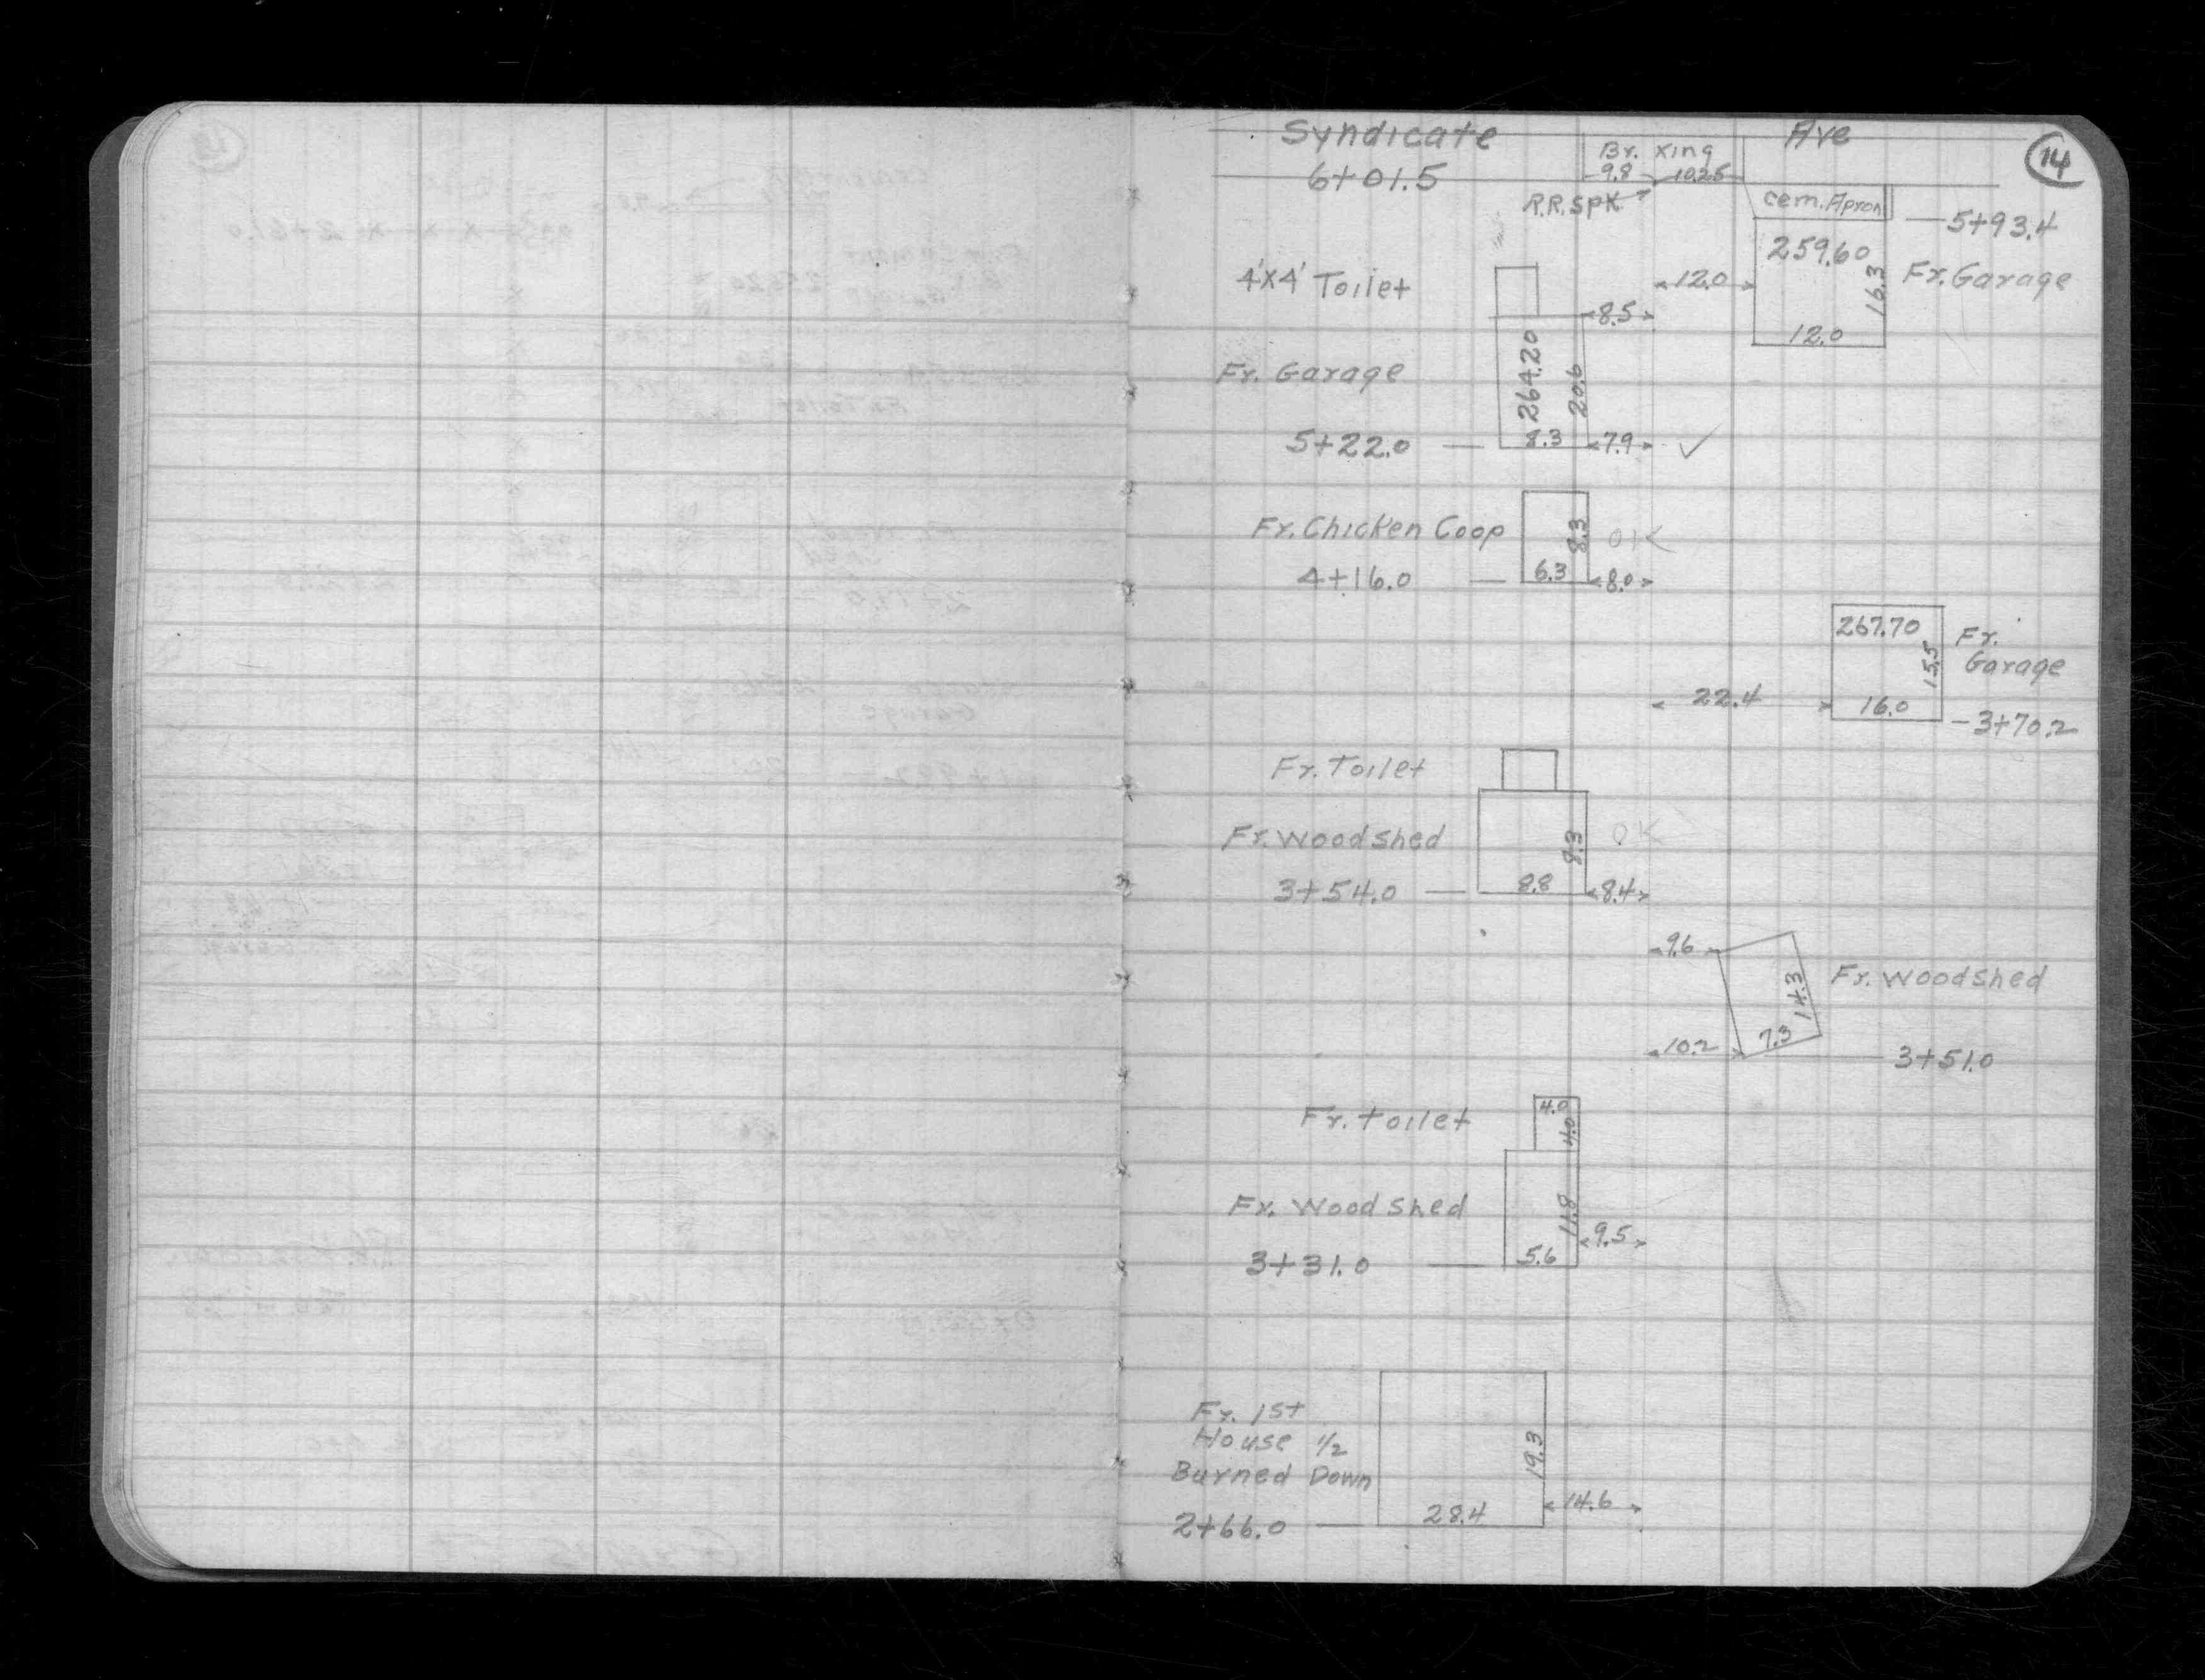 Syndicate Ave
14
Br. Xing
9.8 10.25
6+01.5
R.R. SPK
cem. Apron
5+93.4
259.60
16.3
12.0
Fr. Garage
12.0
4'X4' Toilet
8.5
Fr. Garage
264.20
20.6
5+22.0
8.3
7.9
✓
Fr. Chicken Coop
8.3
OK
4+16.0
6.3
8.0
267.70
15.5
Fr.
Garage
22.4
16.0
3+70.2
Fr. Toilet
Fr. Woodshed
8.3
OK
3+54.0
8.8
8.4
9.6
14.3
Fr. Woodshed
10.2
7.3
3+51.0
Fr. toilet
4.0
4.0
Fr. Wood Shed
11.8
9.5
3+31.0
5.6
Fr. 1st
House 1/2
Burned Down
19.3
2+66.0
28.4
14.6